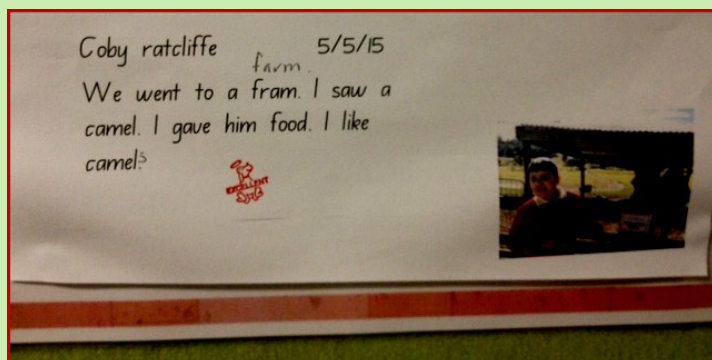 Coby ratcliffe 5/5/15
farm.
We went to a fram. I saw a
camel. I gave him food. I like
camels.
EXCELLENT